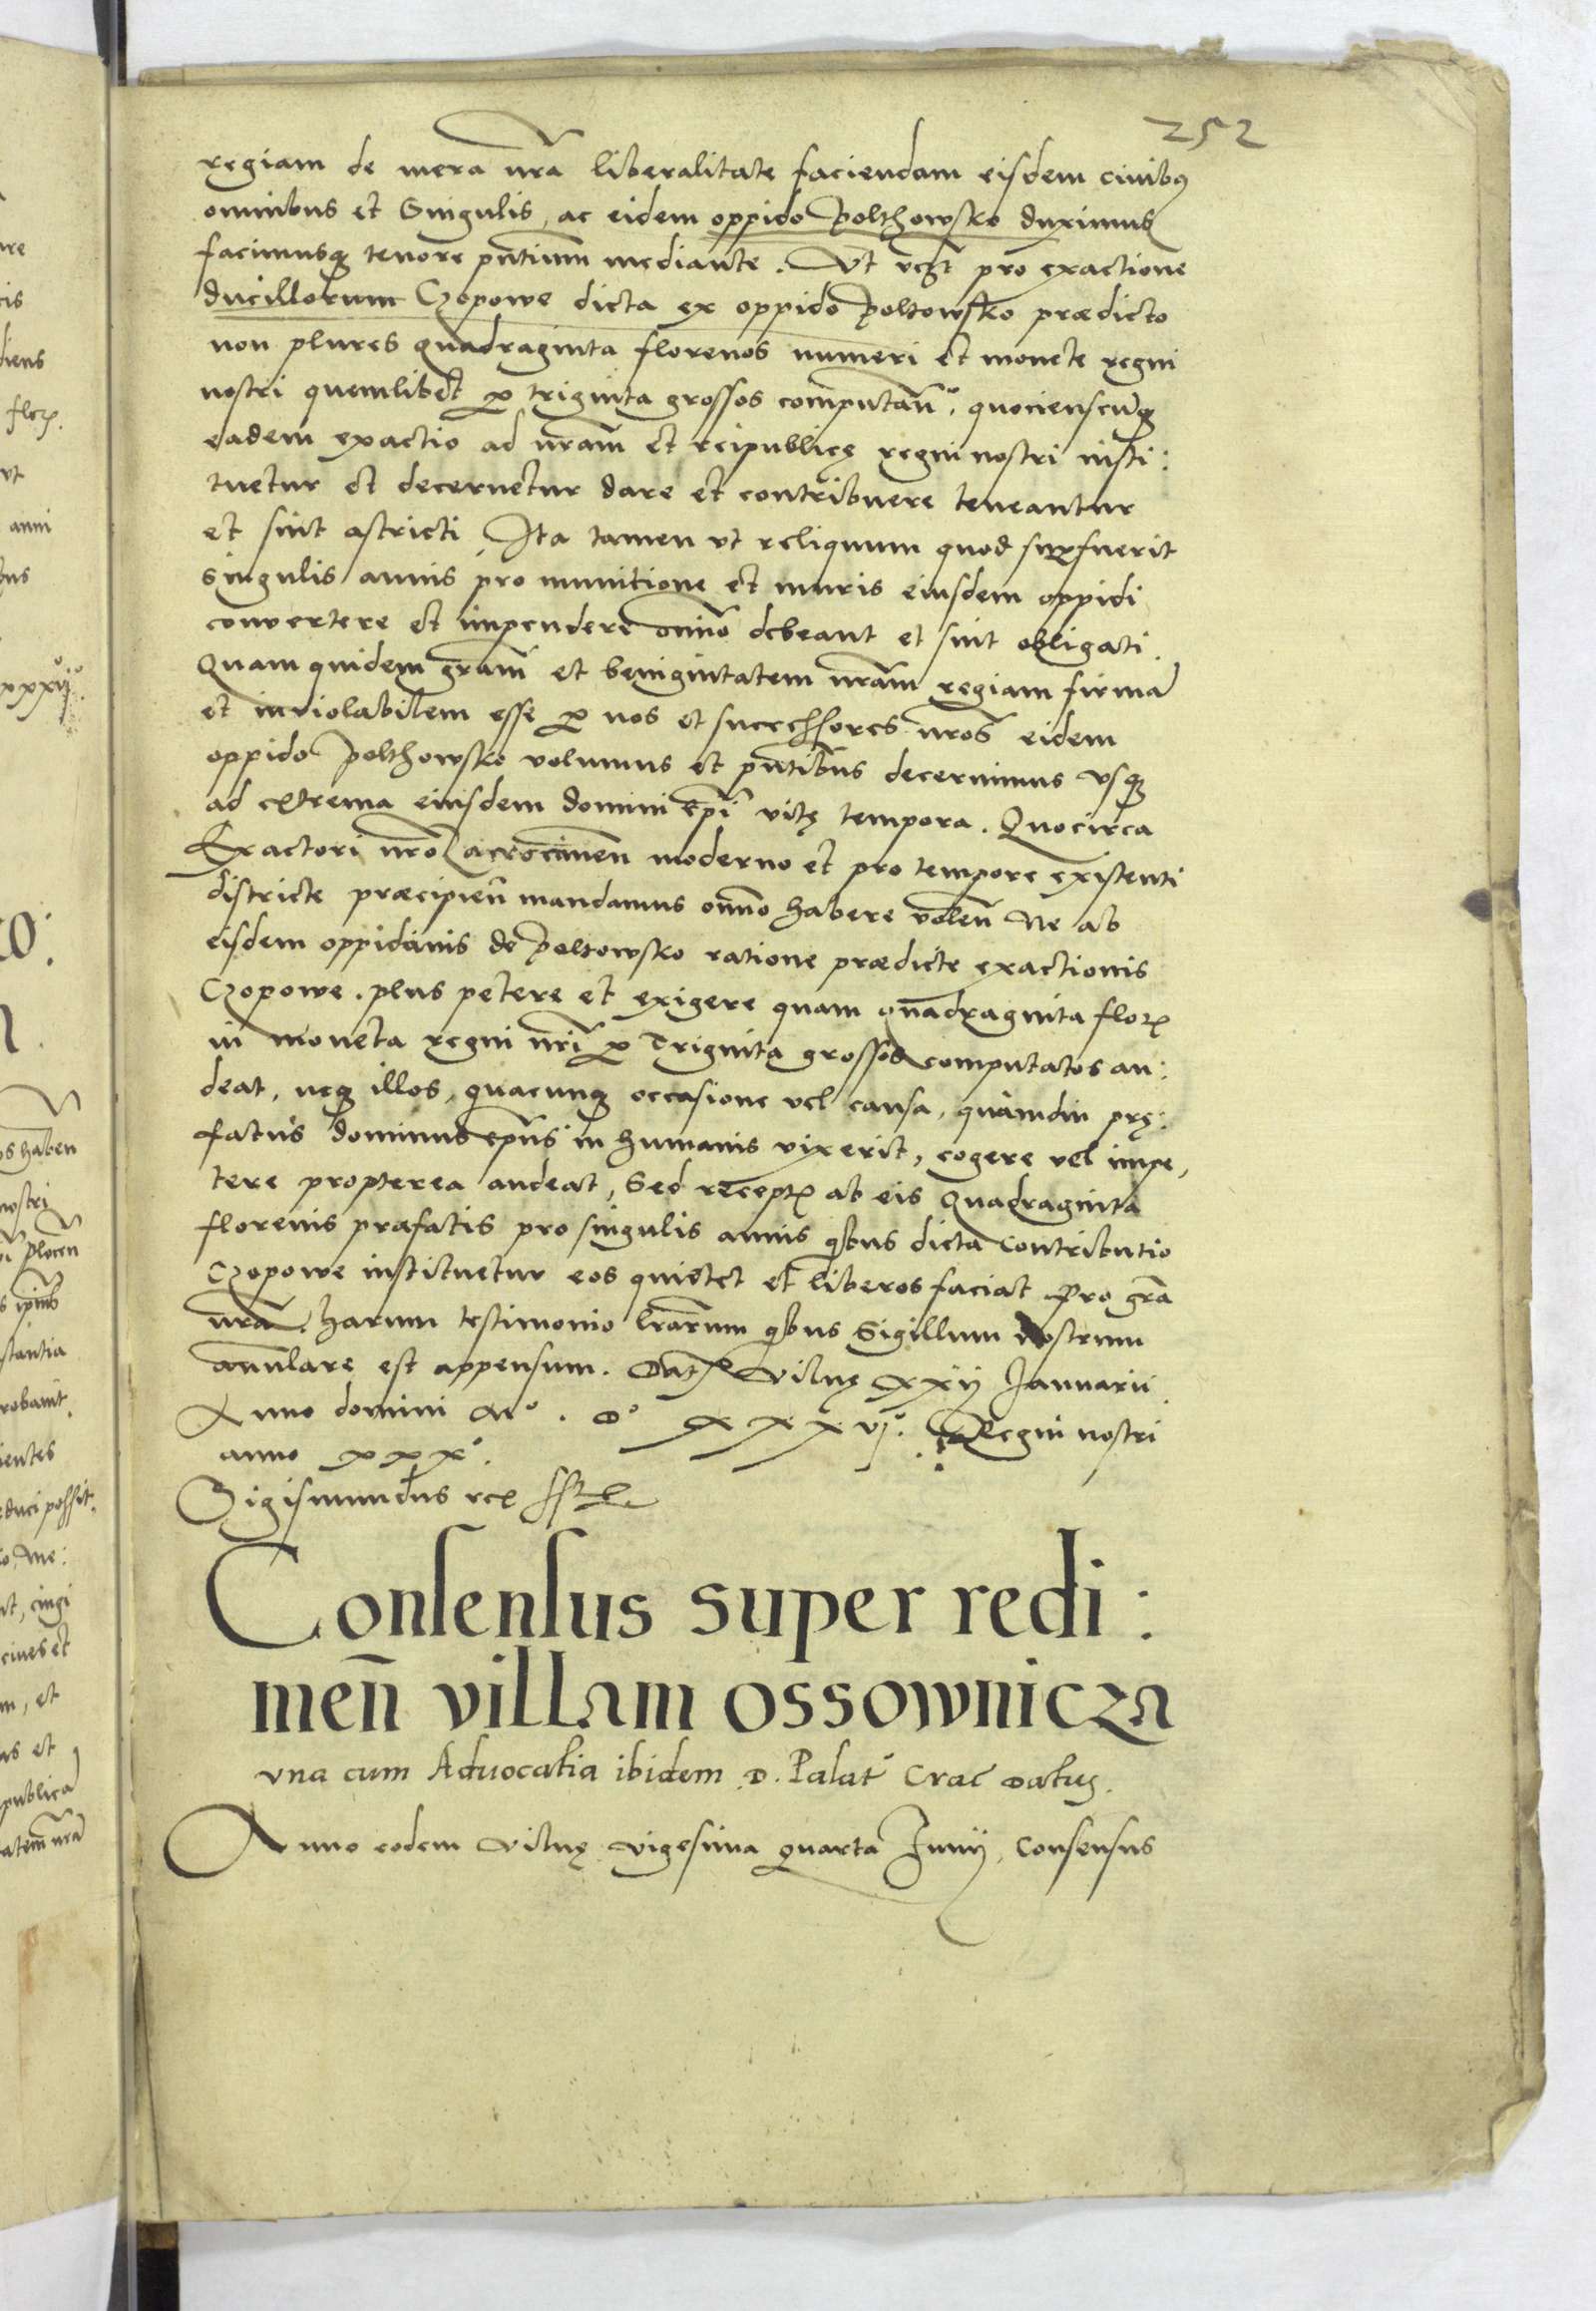 252
regiam de mera nrã liberalitate faciendam eisdem ciuibꝰ
omnibus et Singulis, ac eidem oppido Polthowsko duximus
facimusqꝫ tenore pñtium mediante. Vt vcꝫt pro exactione
ducillorum Czopowe dicta ex oppido Poltowsko prædicto
non plures quadraginta florenos numeri et monete regni
nostri quemlibet ꝑ triginta grossos computañ, quocienscũqꝫ
eadem exactio ad nram̃ et reipublicę regni nostri insti:
tuetur et decernetur dare et contribuere teneantur
et sint astricti, Ita tamen vt reliquum quod suꝑfuerit
singulis annis pro munitione et muris eiusdem oppidi
conuertere et impendere om̃io debeant et sint obligati.
Quam quidem gram̃ et benignitatem nram̃ regiam firmã
et inviolabilem esse ꝑ nos et successores nros̃ eidem
oppido Polthowsko volumus et pñtibus decernimus vsqꝫ
ad extrema eiusdem domini ep̃i vitę tempora. Quocirca
Exactori nrõ moderno et pro tempore existenti
districte præcipieñ mandamus om̃no habere voleñ Ne ab
eisdem oppidanis de Poltowsko ratione prædicte exactionis
Czopowe. plus petere et exigere quam quadraginta floꝝ
in moneta regni nrĩ ꝑ triginta grossos computatos au:
deat, neqꝫ illos, quacunqꝫ occasione vel causa, quamdiu prę:
fatus dominus ep̃us in humanis vixerit, cogere vel impe,
tere propterea audeat, Sed receptꝭ ab eis Quadraginta
florenis præfatis pro singulis annis qbus dicta Contributio
Czopowe instituetur eos quietet et liberos faciat Pro grã
nrã. harum testimonio lrarũm qbus Sigillum Nostrum
añulare est appensum. Datꝭ Vilnę XXij Januarii
Anno domini Mº. Dº XXXvjº. Regni nostri
anno XXXº.
Sigismundus rex sst
Consensus super redi:
meñ villam ossownicza
vna cum Aduocatia ibidem D. Palat Crac datus.
Anno eodem Vilnę vigesima quarta Junij, Consensus